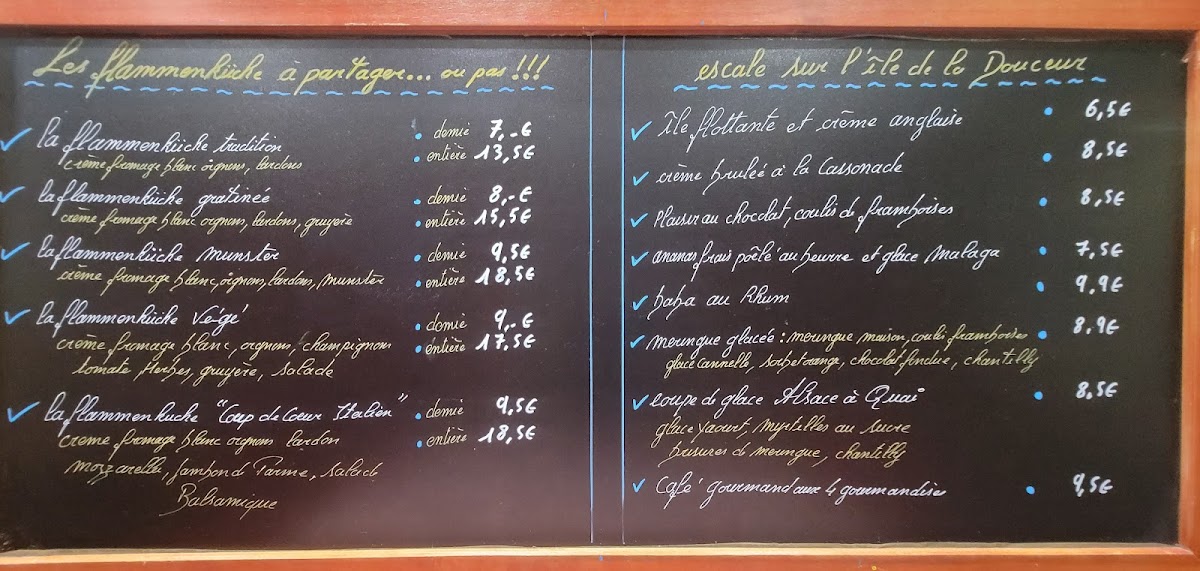 Les flammenküche à partager... ou pas !!!
la flammenküche tradition • demie 7,-€
crème fromage blanc oignons, lardons • entière 13,5€
la flammenküche gratinée • demie 8,-€
crème fromage blanc oignons, lardons, gruyère • entière 15,5€
la flammenküche munster • demie 9,5€
crème fromage blanc, oignons, lardons, munster • entière 18,5€
la flammenküche Végé • demie 9,-€
crème fromage blanc, oignons, champignons • entière 17,5€
tomate Herbes, gruyère, salade
la flammenkuche "Coup de Coeur Italien" • demie 9,5€
crème fromage blanc oignons lardon • entière 18,5€
mozzarella, Jambon de Parme, salade
Balsamique
escale sur l'île de la Douceur
île flottante et crème anglaise • 6,5€
crème brulée à la Cassonade • 8,5€
Plaisir au chocolat, coulis de framboises • 8,5€
ananas frais pôêlé au beurre et glace Malaga • 7,5€
baba au Rhum • 9,9€
meringue glacée : meringue maison, couli framboises • 8,9€
glace cannelle, sorbet orange, chocolat fondue, chantilly
coupe de glace Alsace à Quai • 8,5€
glace yaourt, myrtilles au sucre
brisures de meringue, chantilly
Café gourmand aux 4 gourmandises • 9,5€